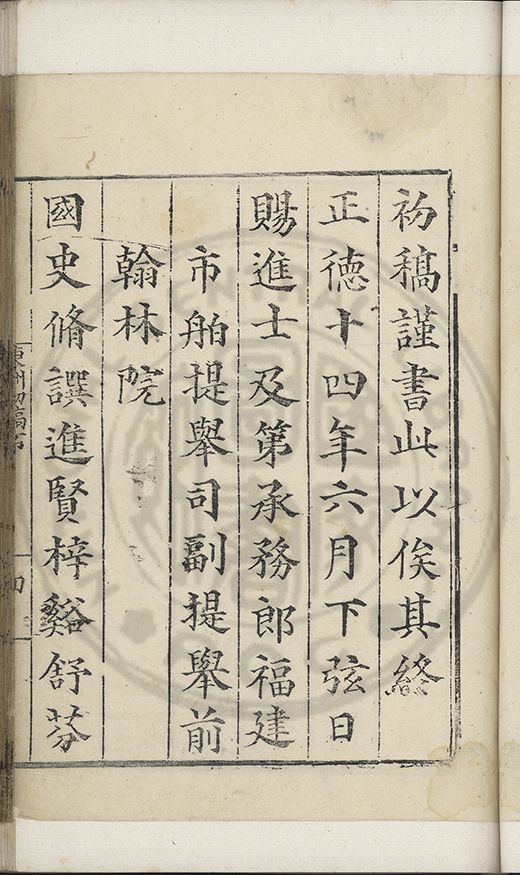 初稿謹書此以俟其終
正徳十四年六月下弦日
賜進士及第承務郎福建
市舶提舉司副提舉前
翰林院
國史脩譔進賢梓谿舒芬